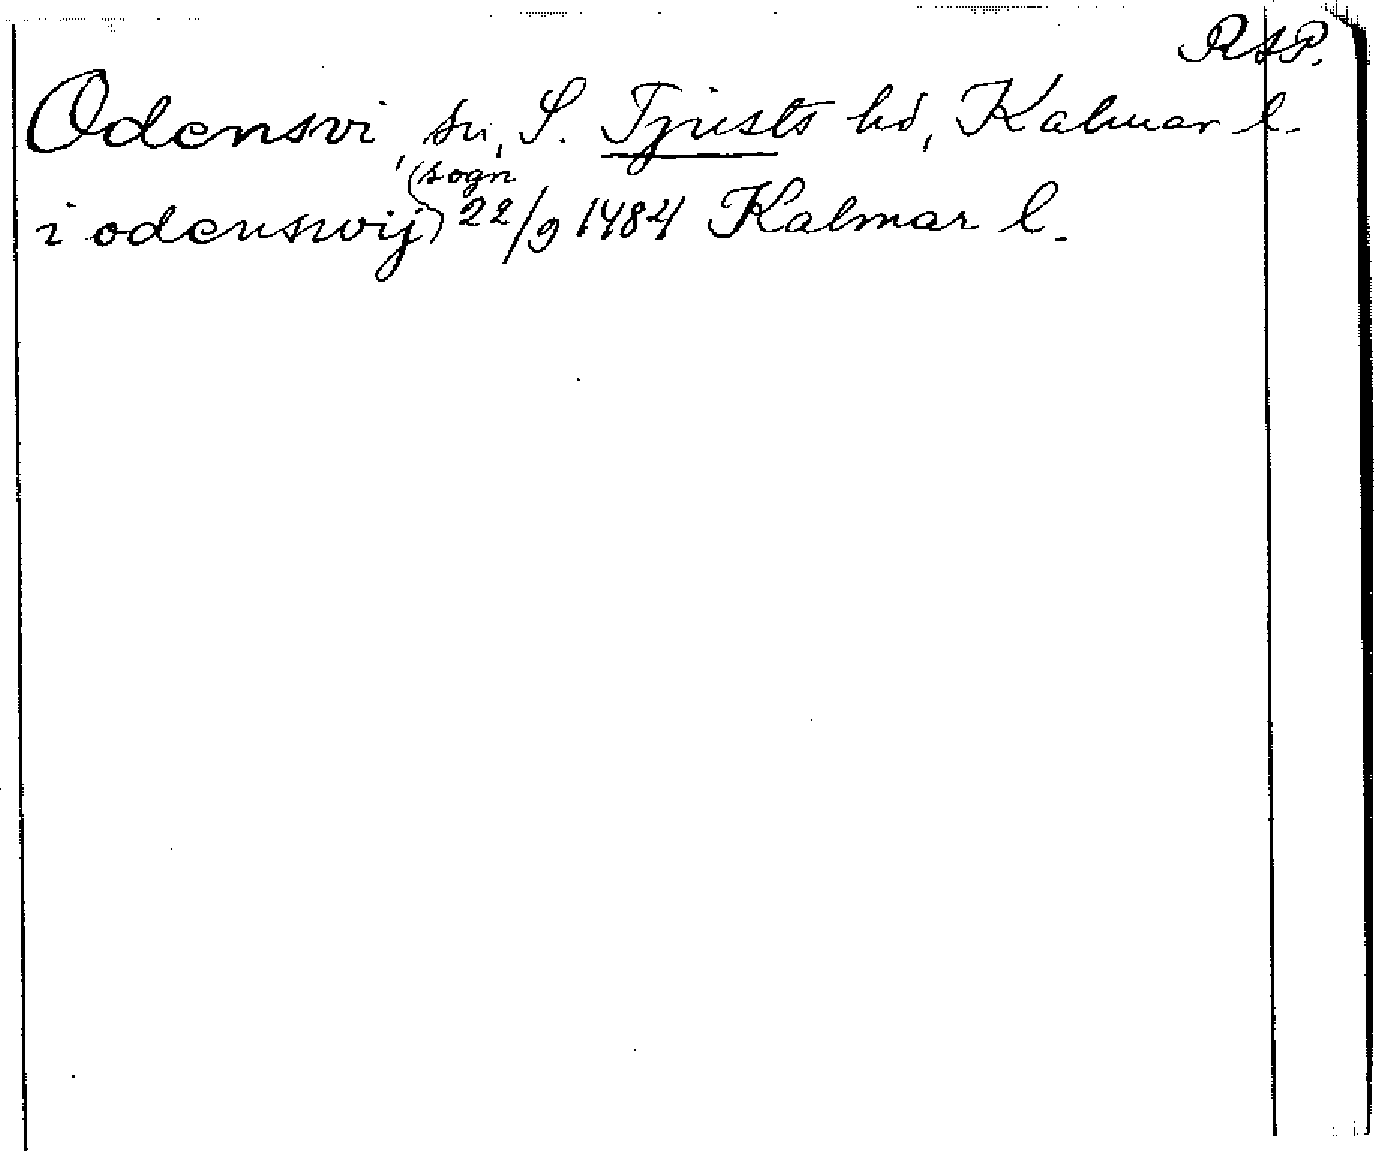 RAP.
Odensvi, sn, S. Tjusts hd, Kalmar l.
(sogn
i odenswij) 22/9 1484 Kalmar l.